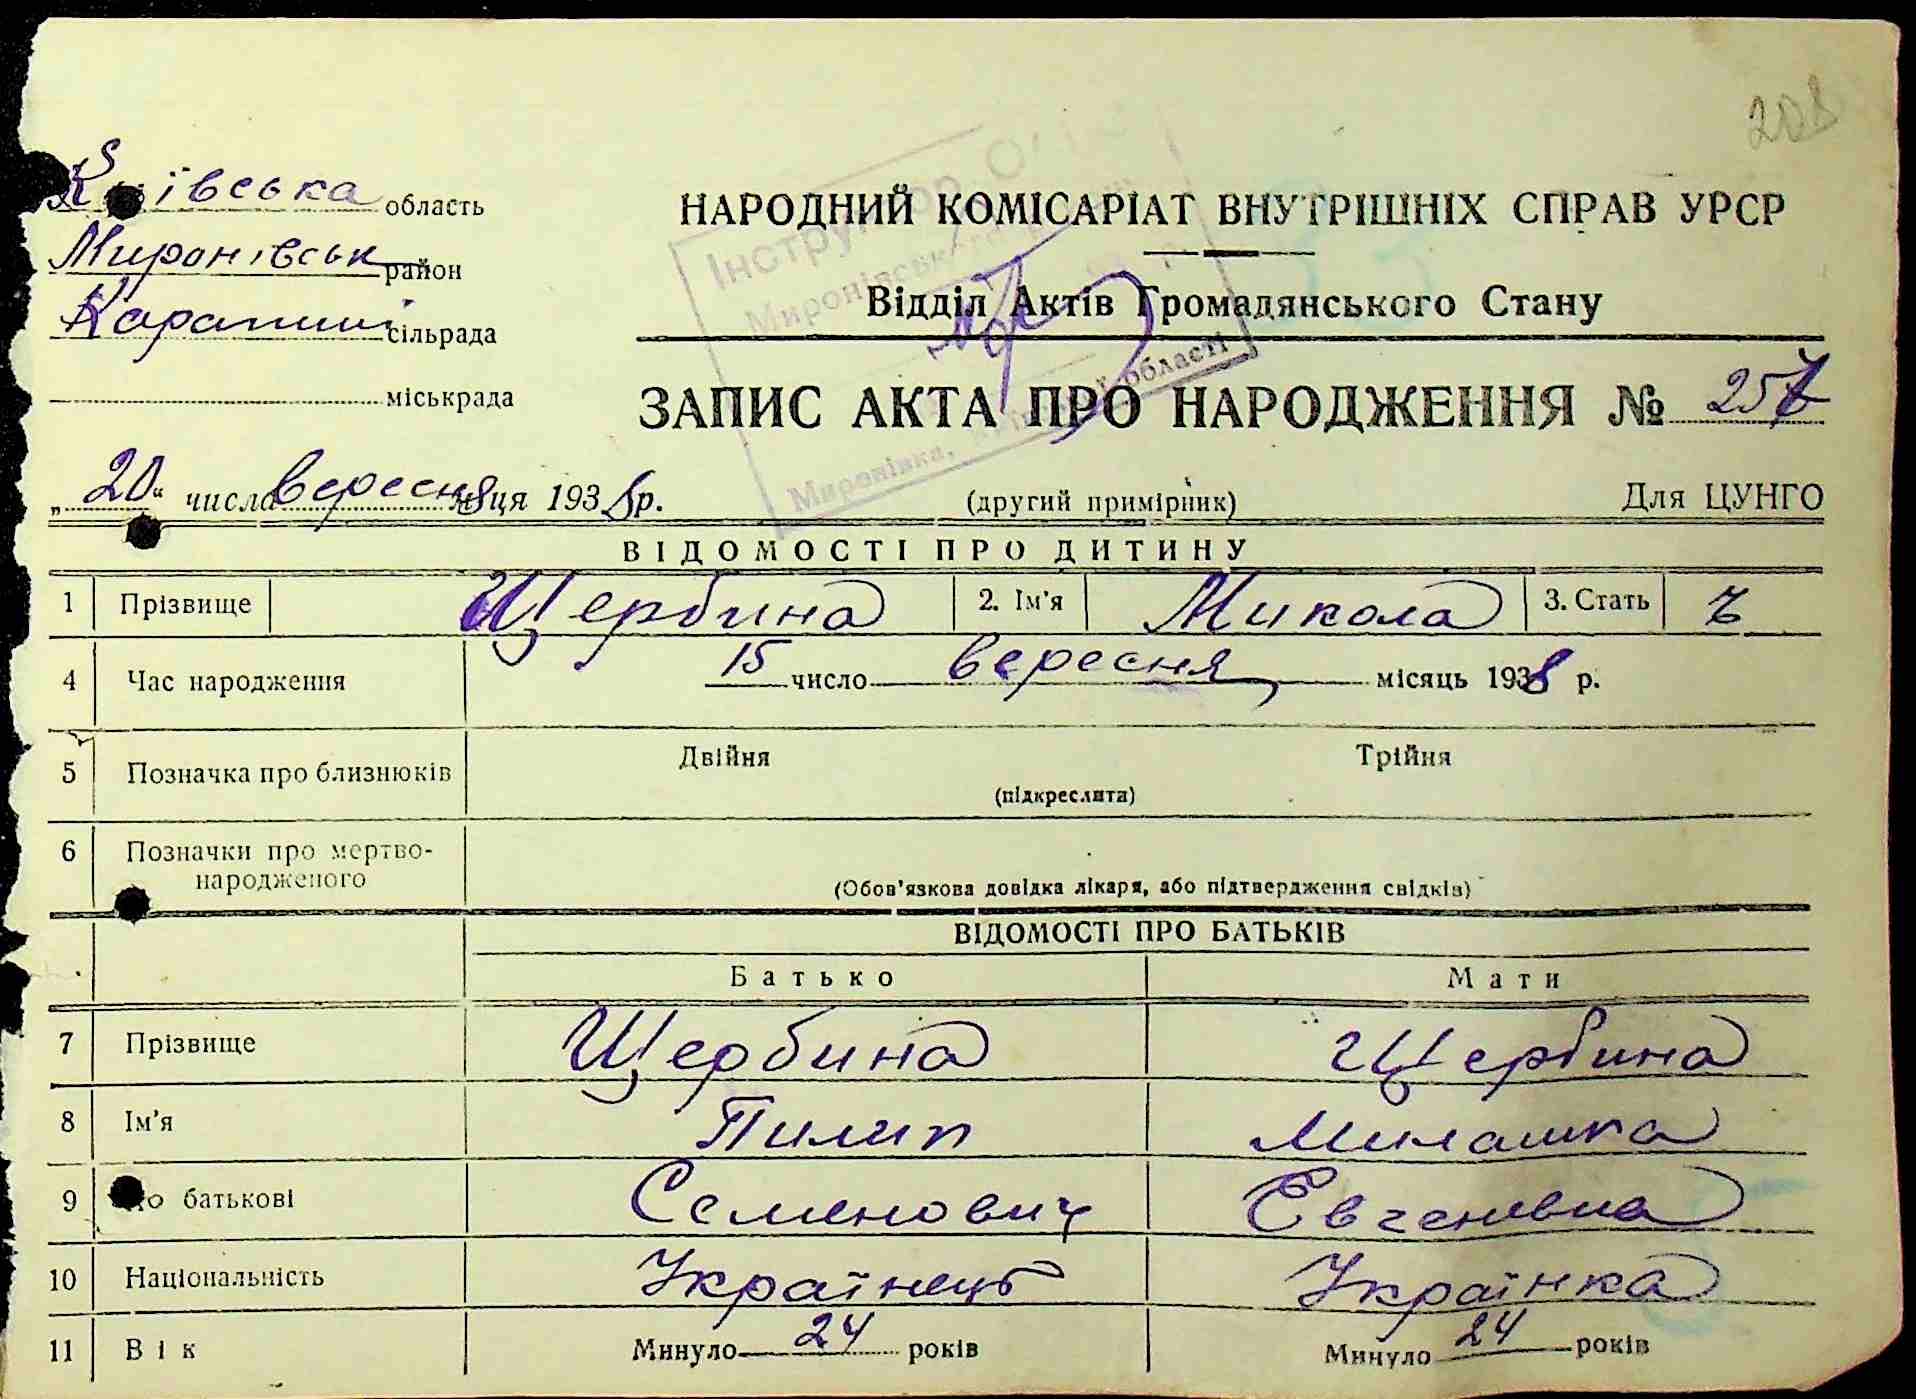 208
Київська область
НАРОДНИЙ КОМІСАРІАТ ВНУТРІШНІХ СПРАВ УРСР
Миронівськ район
Відділ Актів Громадянського Стану
Карапиші сільрада
міськрада
ЗАПИС АКТА ПРО НАРОДЖЕННЯ № 257
Інструктор
Миронівськ
Миронівка, області
„20“ числа вересня м-ця 1938 р. (другий примірник) Для ЦУНГО
ВІДОМОСТІ ПРО ДИТИНУ
1 Прізвище Щербина 2. Ім'я Микола 3. Стать ч
4 Час народження 15 число вересня місяць 1938 р.
5 Позначка про близнюків Двійня Трійня
(підкреслити)
6 Позначки про мертво-
народженого (Обов'язкова довідка лікаря, або підтвердження свідків)
ВІДОМОСТІ ПРО БАТЬКІВ
Батько Мати
7 Прізвище Щербина Щербина
8 Ім'я Пилип Милашка
9 По батькові Семенович Євгенівна
10 Національність Українець Українка
11 Вік Минуло 24 років Минуло 24 років